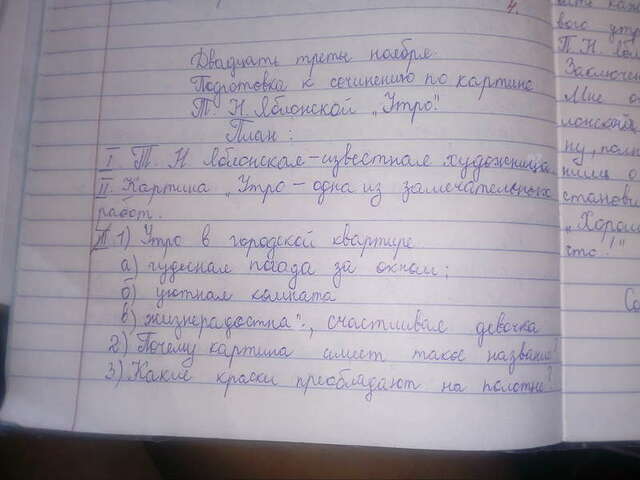 4.
Двадцать третье ноября.
Подготовка к сочинению по картине
Т. Н. Яблонской „Утро".
План:
I. Т. Н Яблонская – известная художница.
II. Картина „Утро – одна из замечательных
работ.
1) Утро в городской квартире
а) чудесная погода за окном;
б) уютная комната
в) жизнерадостна", счастливая девочка
2) Почему картина имеет такое название?
3) Какие краски преобладают на полотне?
вого утр
Т. Н. Ябл
Заключе
Мне о
лонской
ну, полн
нима о
станови
„Хорош
что!"
Со